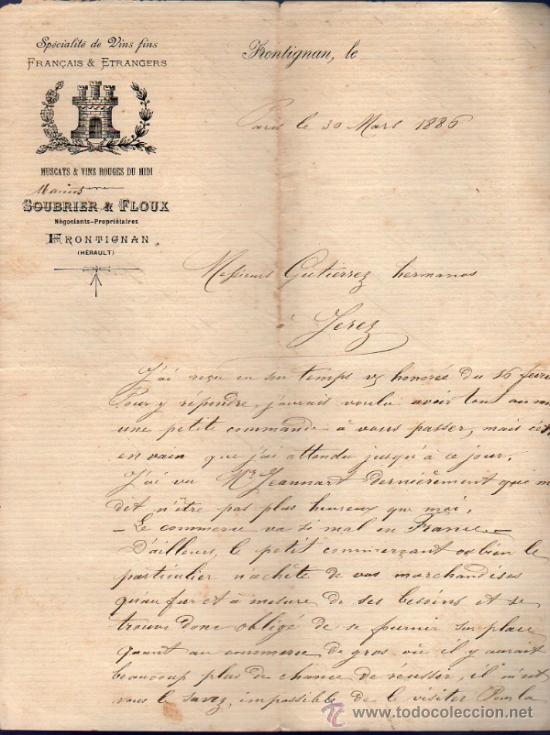 Spécialité de Vins fins
FRANÇAIS & ETRANGERS
MUSCATS & VINS ROUGES DU MIDI
Marius
SOUBRIER & FLOUX
Négociants-Propriétaires
FRONTIGNAN
(HÉRAULT)
Frontignan, le
Paris le 30 Mars 1886
Messieurs Gutierrez hermanos
à Jerez
J'ai reçu en son temps vs honorée du 16 févri
Pour y répondre, j'aurais voulu avoir tout au m
une petite commande à vous passer, mais c'est
en vain que j'ai attendu jusqu'à ce jour.
J'ai vu Mr Jeannart dernièrement qui m
dit n'être pas plus heureux que moi.
- Le commerce va si mal en France -
D'ailleurs, le petit commerçant ou bien le
particulier n'achète de vos marchandises
qu'au fur et à mesure de ses besoins et se
trouve donc obligé de se fournir sur place
quant au commerce de gros où il y aurait
beaucoup plus de chance de réussir, il m'est
vous le savez, impossible de le visiter Pour la
todocoleccion
POR AMOR AL COLECCIONISMO
www.todocoleccion.net